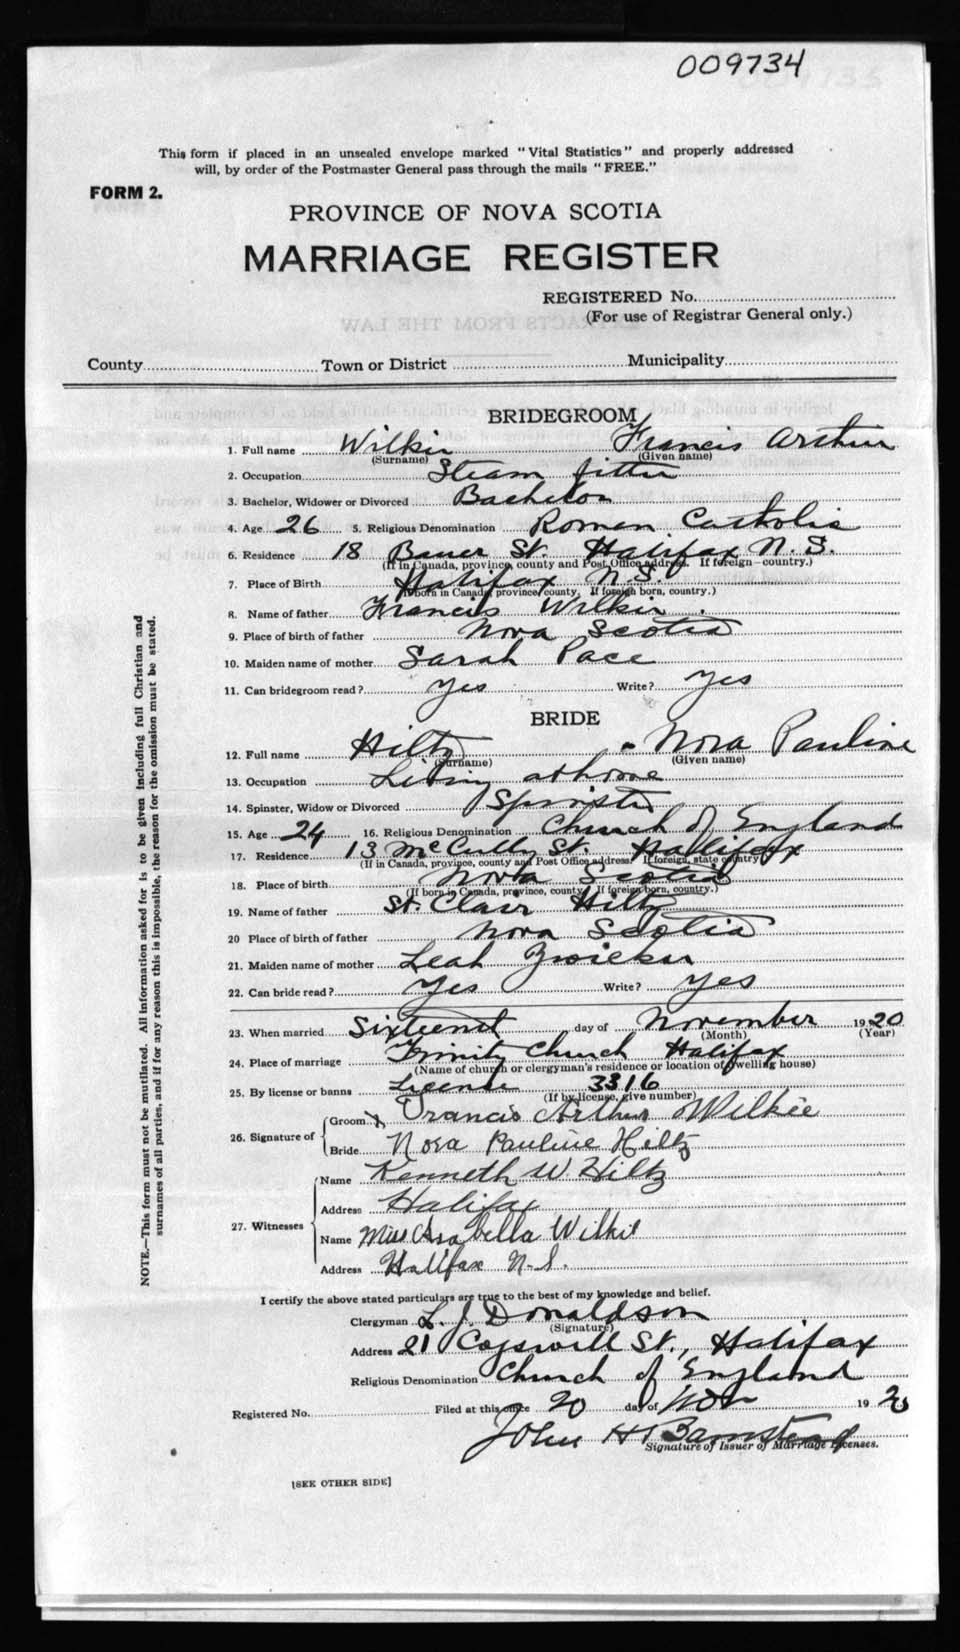 009734
This form if placed in an unsealed envelope marked "Vital Statistics" and properly addressed
will, by order of the Postmaster General pass through the mails "FREE."
FORM 2.
PROVINCE OF NOVA SCOTIA
MARRIAGE REGISTER
REGISTERED No.
(For use of Registrar General only.)
County Town or District Municipality
BRIDEGROOM
1. Full name Wilkie Francis Arthur
(Surname) (Given name)
2. Occupation Steam fitter
3. Bachelor, Widower or Divorced Bachelor
4. Age 26 5. Religious Denomination Roman Catholic
6. Residence 18 Bauer St. Halifax N.S.
(If in Canada, province, county and Post Office address. If foreign—country.)
7. Place of Birth Halifax N.S.
(If born in Canada, province, county. If foreign born, country.)
8. Name of father Francis Wilkie
9. Place of birth of father Nova Scotia
10. Maiden name of mother Sarah Pace
11. Can bridegroom read? yes Write? yes
BRIDE
12. Full name Hiltz Nora Pauline
(Surname) (Given name)
13. Occupation Living at home
14. Spinster, Widow or Divorced Spinster
15. Age 24 16. Religious Denomination Church of England
17. Residence 13 McCully St. Halifax
(If in Canada, province, county and Post Office address. If foreign, state country)
18. Place of birth Nova Scotia
(If born in Canada, province, county. If foreign born, country.)
19. Name of father St. Clair Hiltz
20 Place of birth of father Nova Scotia
21. Maiden name of mother Leah Zwicker
22. Can bride read? Yes Write? Yes
23. When married Sixteenth day of November 1920
(Month) (Year)
24. Place of marriage Trinity Church Halifax
(Name of church or clergyman's residence or location of dwelling house)
25. By license or banns License 3316
(If by license, give number)
26. Signature of Groom X Francis Arthur Wilkie
Bride Nora Pauline Hiltz
27. Witnesses Name Kenneth W Hiltz
Address Halifax
Name Miss Isabella Wilkie
Address Halifax N.S.
I certify the above stated particulars are true to the best of my knowledge and belief.
Clergyman L. J. Donaldson
(Signature)
Address 21 Cogswell St., Halifax
Religious Denomination Church of England
Registered No. Filed at this office 20 day of Nov 1920
John H Barnstead
Signature of Issuer of Marriage Licenses.
[SEE OTHER SIDE]
NOTE.—This form must not be mutilated. All information asked for is to be given including full Christian and
surnames of all parties, and if for any reason this is impossible, the reason for the omission must be stated.